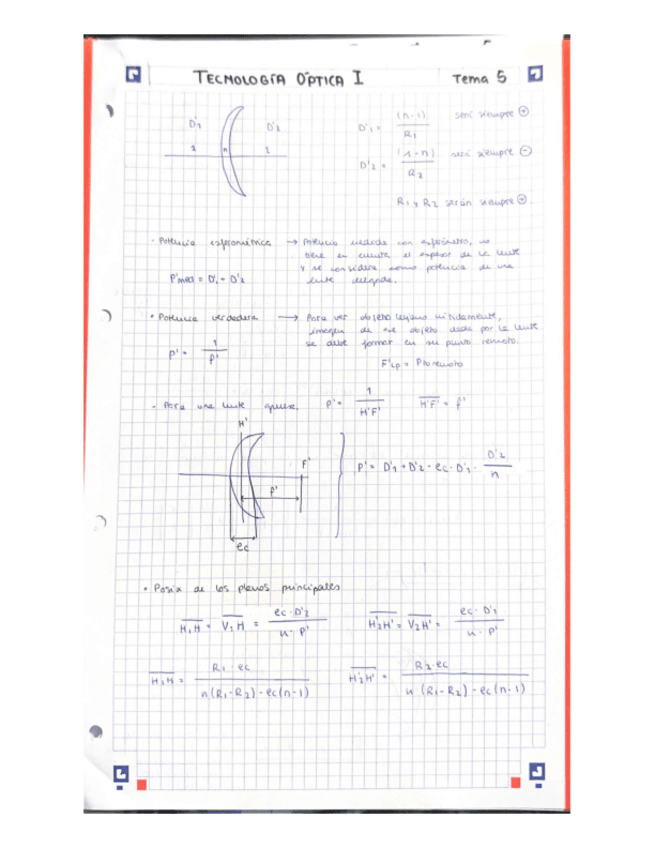 TECNOLOGÍA ÓPTICA I Tema 5
D'1 D'2
1 n 1
D'1 = (n-1) / R1 será siempre ⊕
D'2 = (1-n) / R2 será siempre ⊖
R1 y R2 serán siempre ⊕.
· Potencia esferométrica → Potencia medida con esferómetro, no
tiene en cuenta el espesor de la lente
y se considera como potencia de una
lente delgada.
P'med = D'1 + D'2
• Potencia verdadera → Para ver objeto lejano nítidamente,
imagen de ese objeto dada por la lente
se debe formar en su punto remoto.
P' = 1 / f'
F'Lp = Pto remoto
- Para una lente gruesa, P' = 1 / H'F' H'F' = f'
H'
F'
f'
ec
P' = D'1 + D'2 - ec · D'1 · D'2 / n
• Posic. de los planos principales
H1H = V1H = ec · D'2 / n · P'
H'2H' = V2H' = ec · D'1 / n · P'
H1H = R1 · ec / n(R1-R2) - ec(n-1)
H'2H' = R2 · ec / n (R1-R2) - ec(n-1)